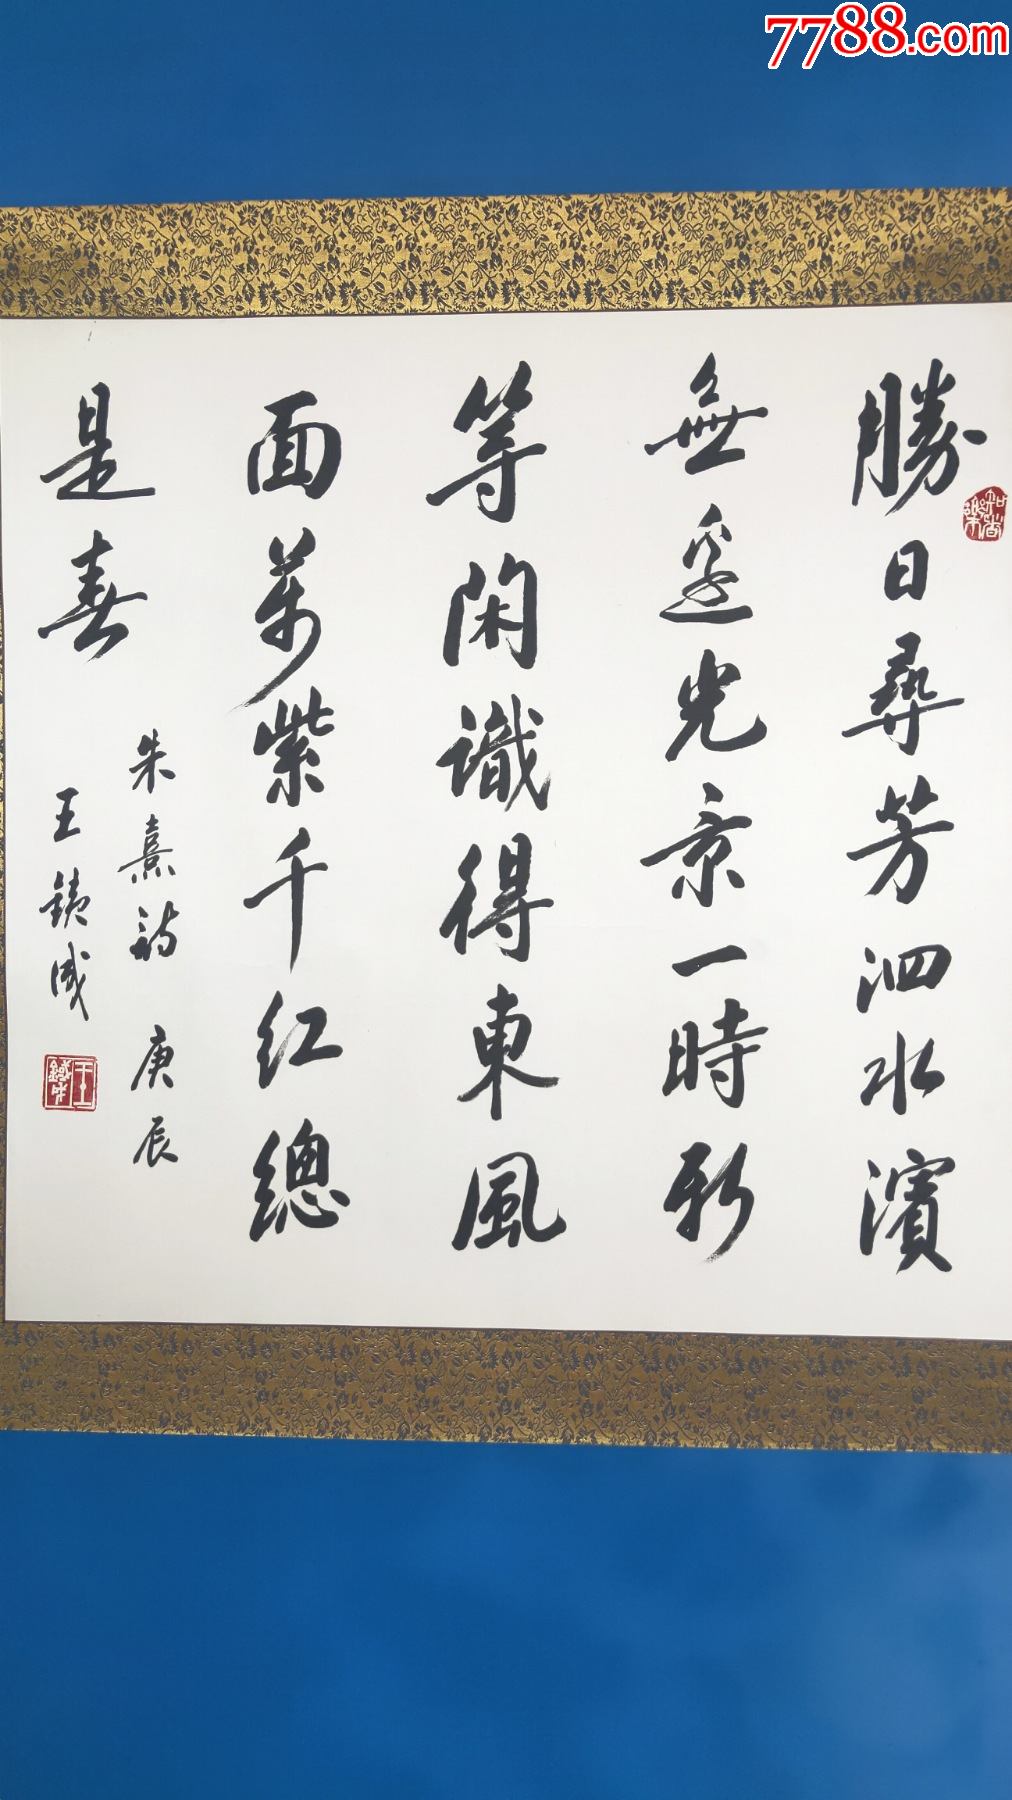 7788.com
勝日尋芳泗水濱
無邊光景一時新
等閑識得東風
面萬紫千紅總
是春
朱熹詩 庚辰
王鐵成